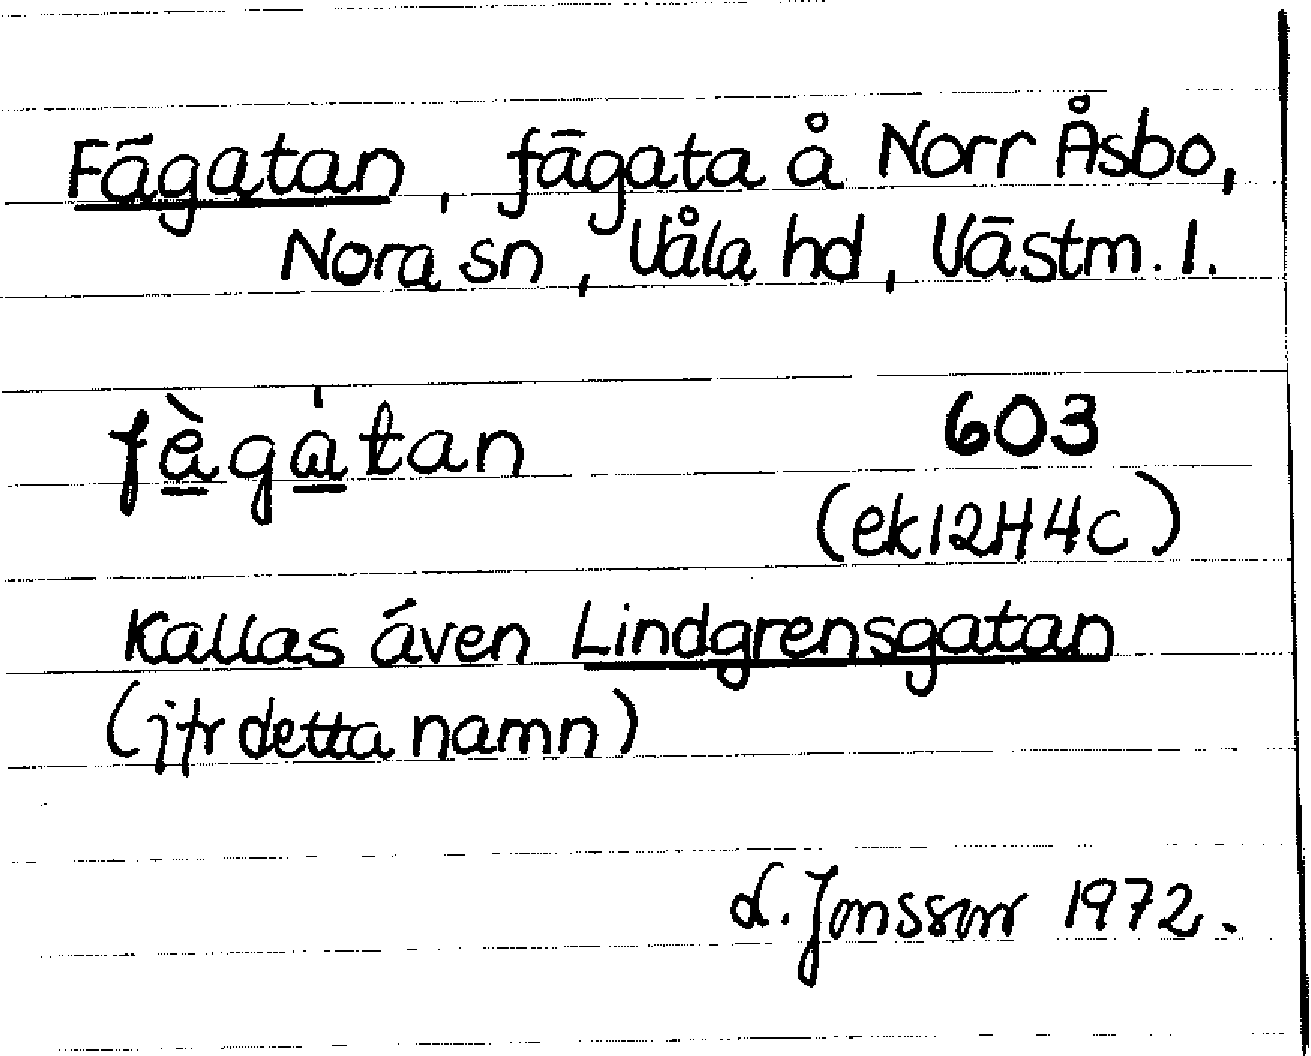 Fägatan, fägata å Norr Åsbo,
Nora sn, Våla hd, Västm. l.
fὲgàtan 603
(ek 12H4c)
Kallas även Lindgrensgatan
(jfr detta namn)
Jonsson 1972.